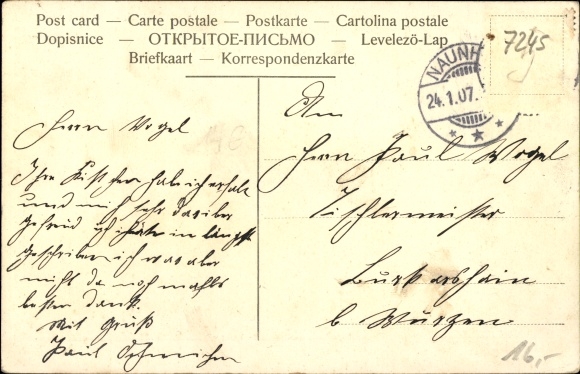 Post card — Carte postale — Postkarte — Cartolina postale
Dopisnice — ОТКРЫТОЕ-ПИСЬМО — Levelezö-Lap
Briefkaart — Korrespondenzkarte
7245
NAUNH
24.1.07.
Herrn Vogel
Ihre Kistchen habe ich erhalt
und mich sehr darüber
gefreid ich hätte in längst
geschrieben ich war aber
nicht da nochmahls
besten Dank.
Mit Gruß
Paul
An
Herrn Paul Vogel
Tischlermeister
Burkartshain
b Wurzen
16,-